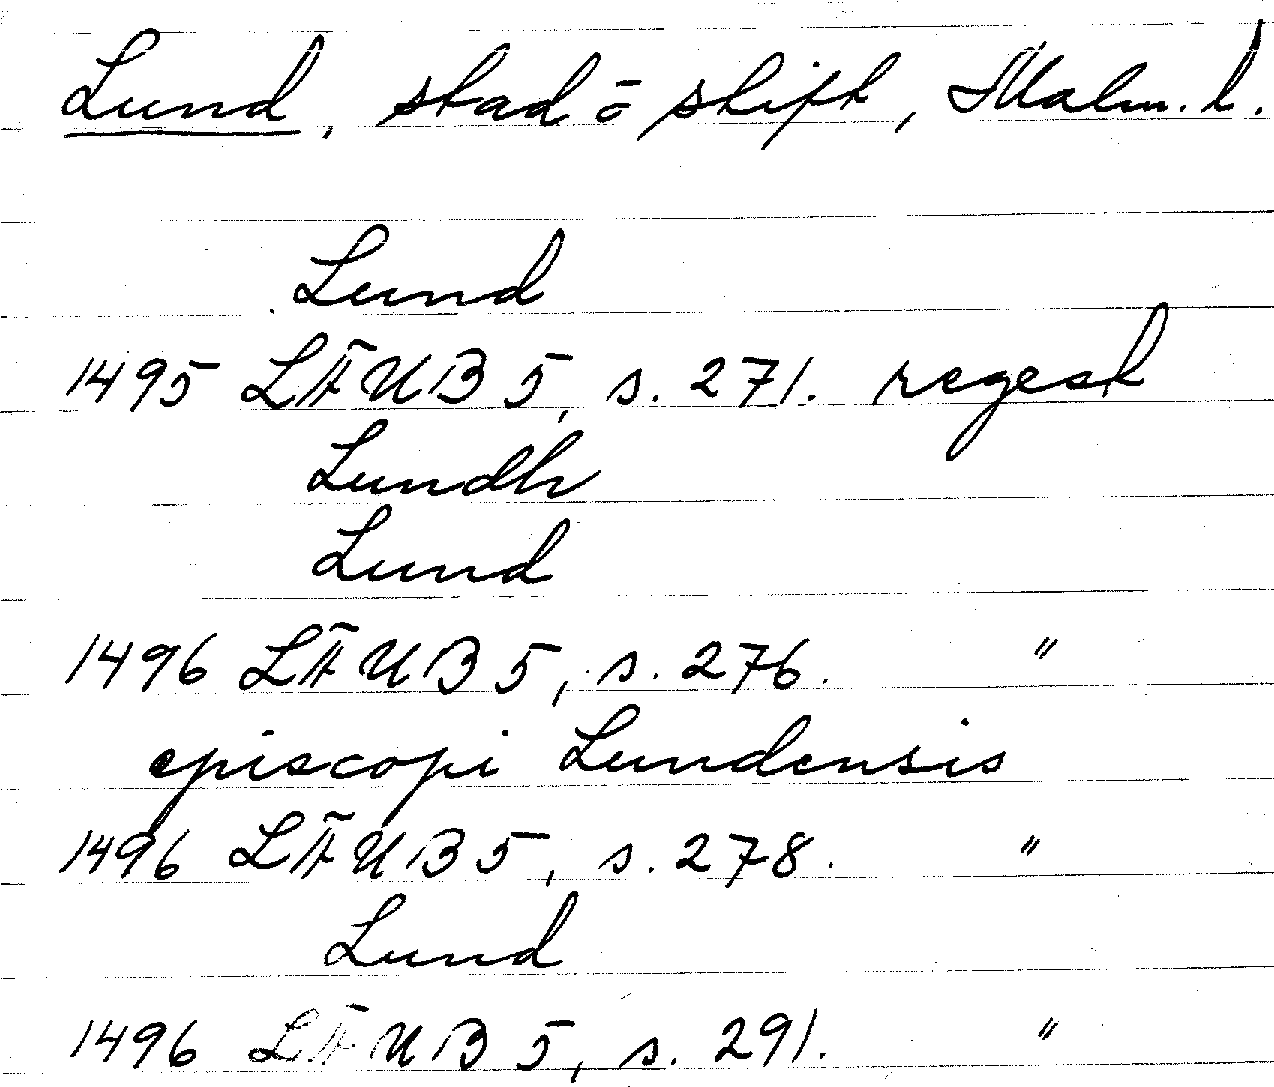 Lund, stad ō stift, Malm. l.
Lund
1495 LÄUB 5, s. 271. regest
Lundh
Lund
1496 LÄUB 5, s. 276. "
episcopi Lundensis
1496 LÄUB 5, s. 278. "
Lund
1496 LÄUB 5, s. 291. "